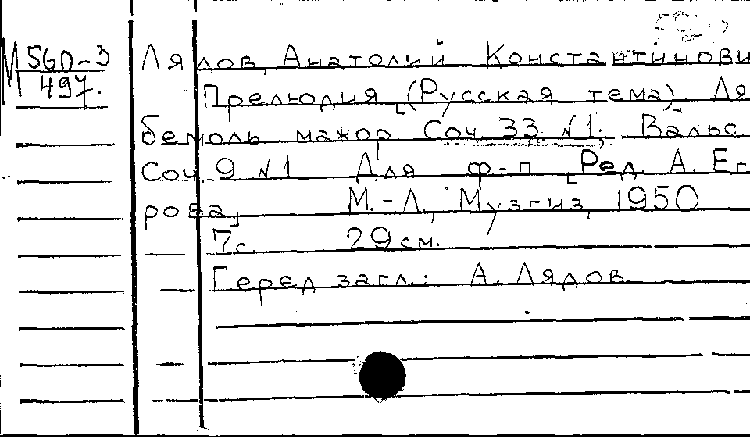 М 560-3
497.
Лядов, Анатолий Константинови
Прелюдия (Русская тема) Ля
бемоль мажор Соч. 33 №1; Вальс
Соч. 9 №1 Для ф-п [Ред. А. Его
рова]
М.-Л., Музгиз, 1950
7с. 29 см.
Перед загл.: А. Лядов